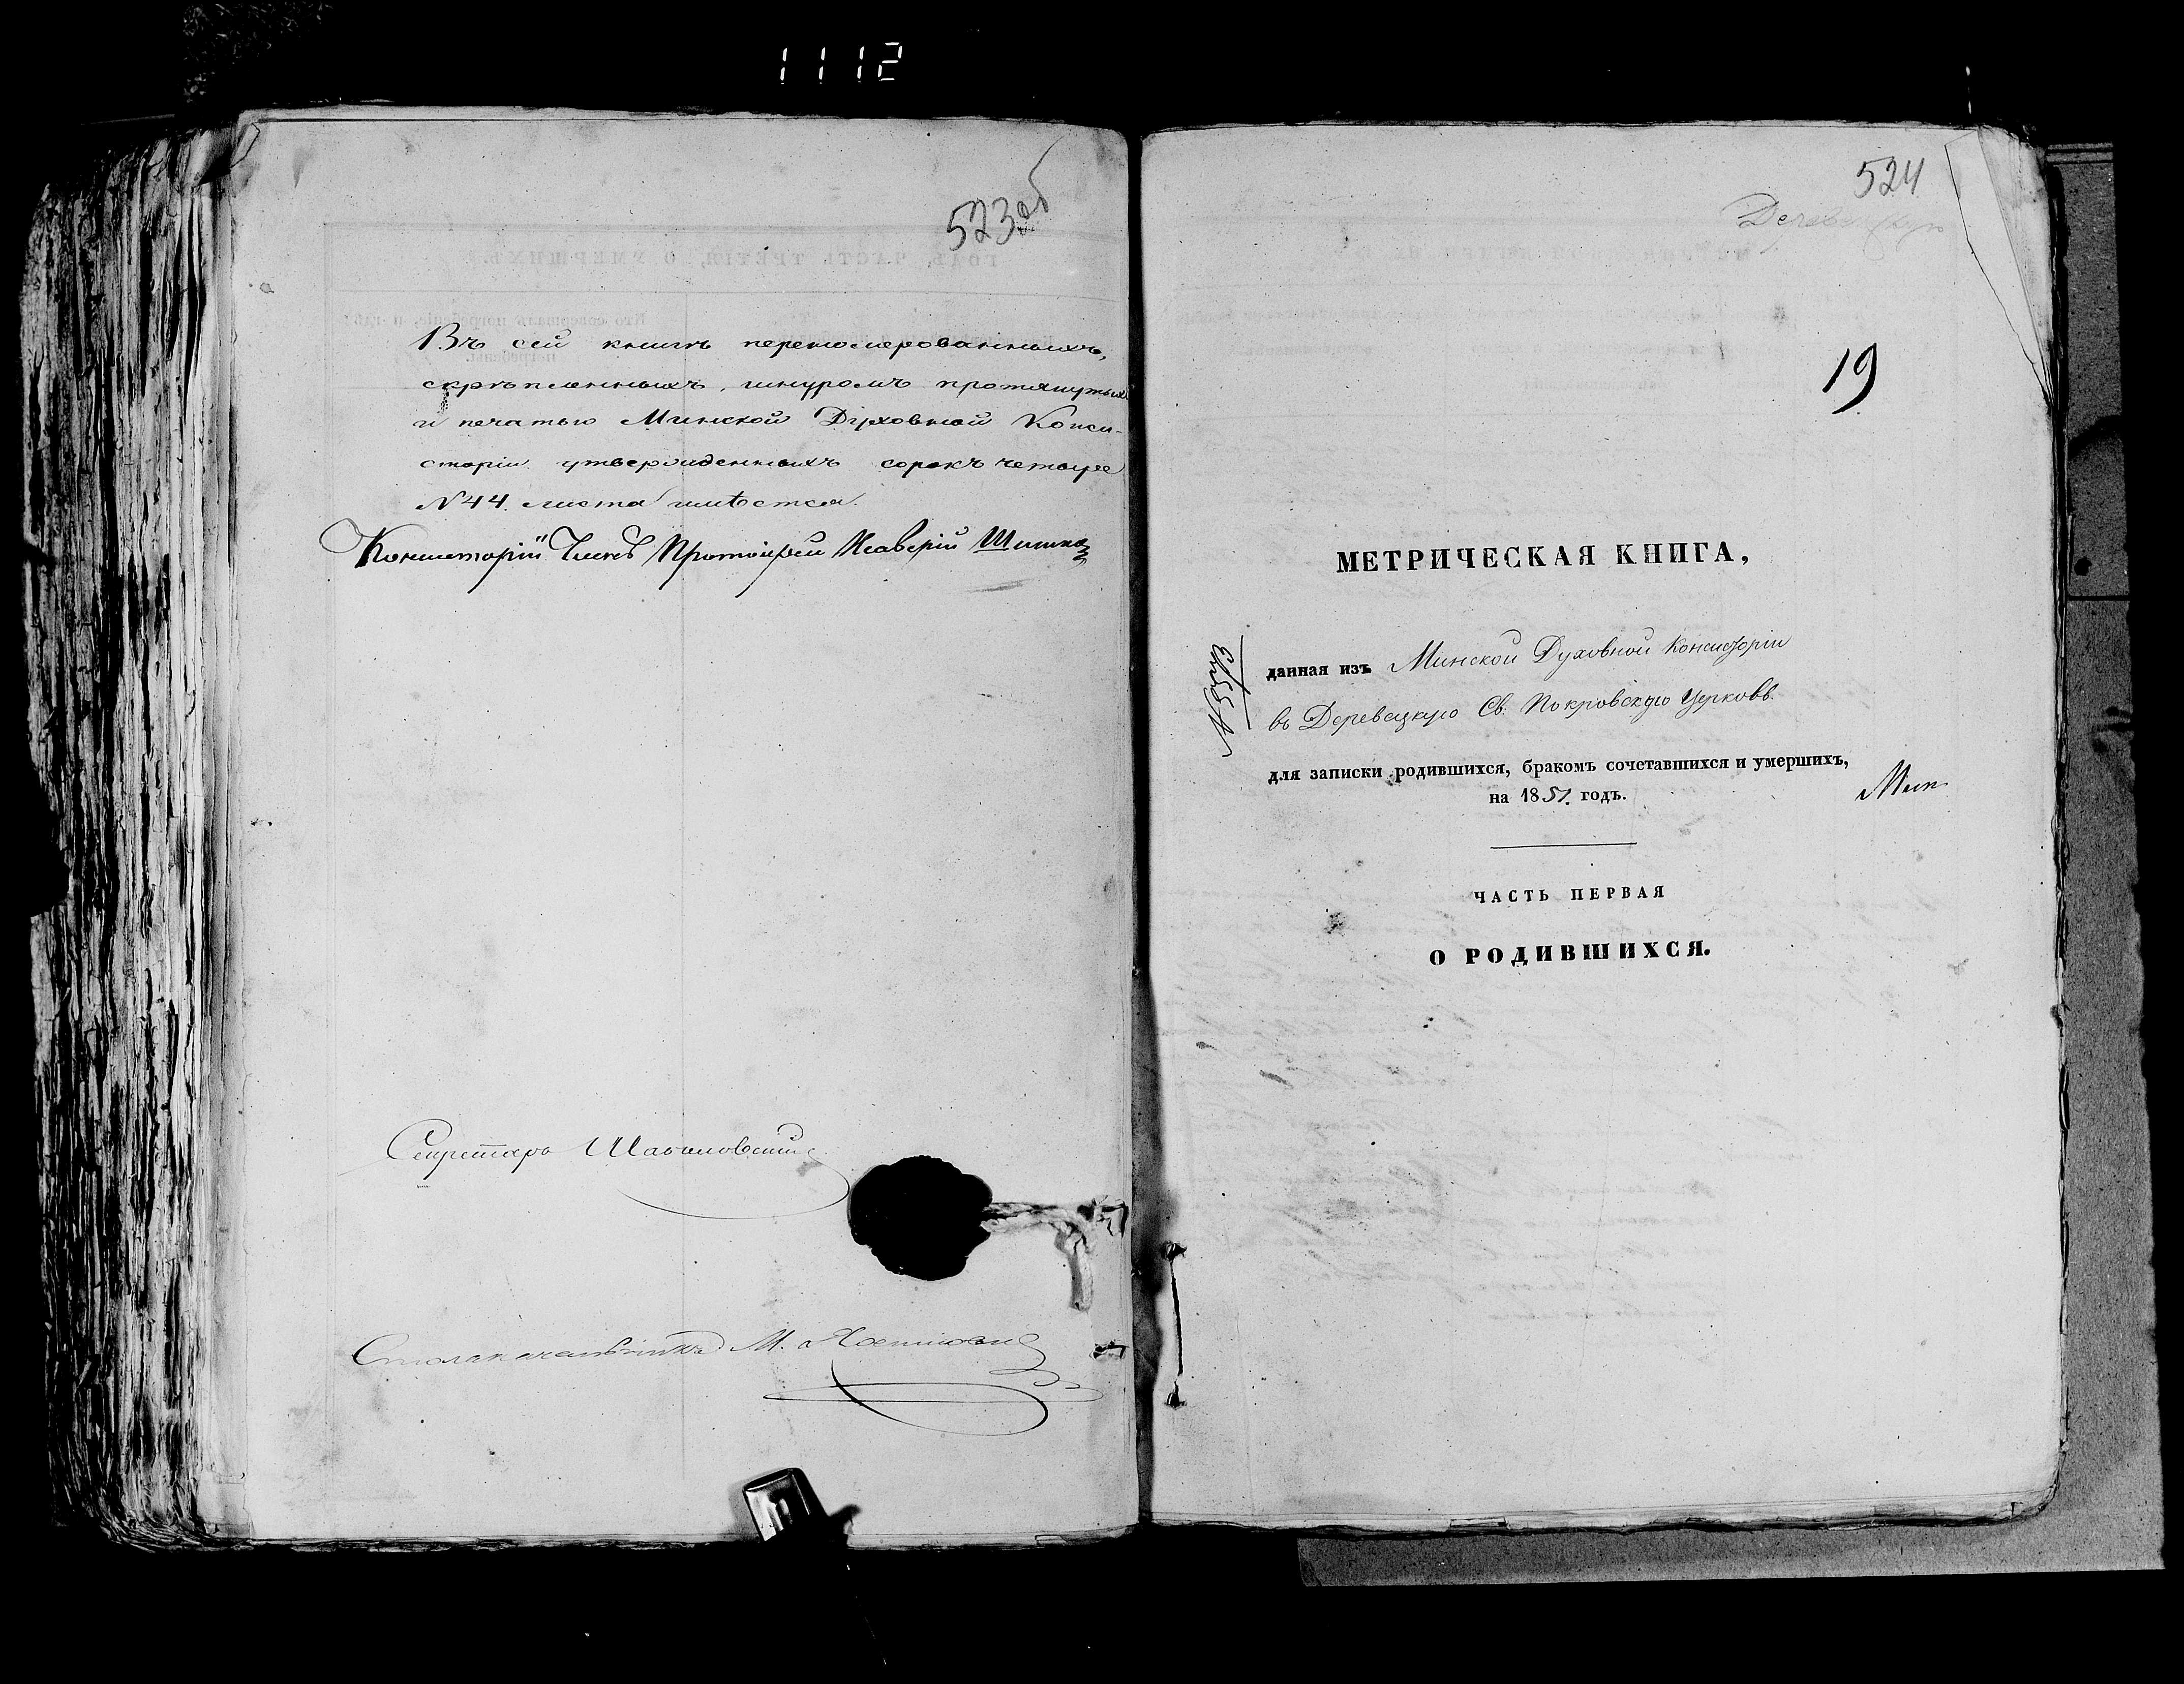 1112
523об
Въ сей книгѣ перенумерованныхъ,
скрѣпленныхъ, шнуромъ протянутыхъ
и печатью Минской Духовной Конси-
сторіи утвержденныхъ сорокъ четыре
№ 44. листа имѣется.
Консисторіи Членъ Протоіерей Ксаверій
Секретарь
Столоначальникъ М.
524
Деревецкую
19
МЕТРИЧЕСКАЯ КНИГА,
данная изъ Минской Духовной Консисторіи
въ Деревецкую Св. Покровскую Церковь.
для записки родившихся, бракомъ сочетавшихся и умершихъ,
на 1851. годъ.
ЧАСТЬ ПЕРВАЯ
О РОДИВШИХСЯ.